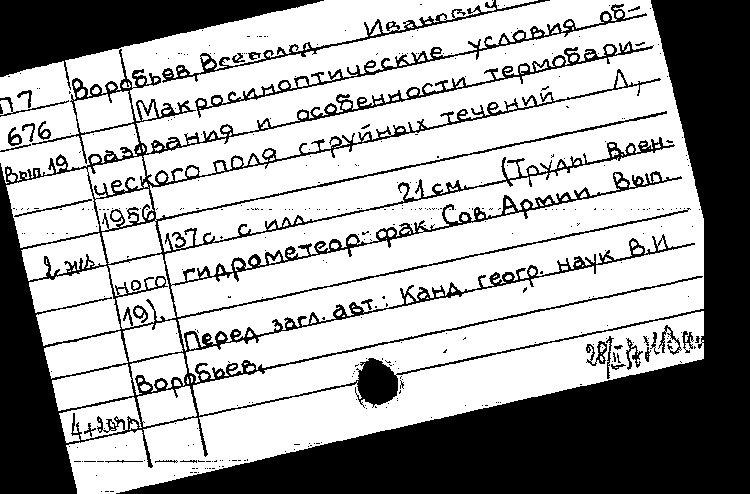 П7 Воробьев, Всеволод Иванович
676 Макросиноптические условия об-
Вып.19. разования и особенности термобари-
ческого поля струйных течений. Л.,
1956.
137с. с илл. 21 см. (Труды Воен-
2 экз. ного гидрометеор. фак. Сов. Армии. Вып.
19).
Перед загл. авт.: Канд. геогр. наук В.И.
Воробьев.
28/II